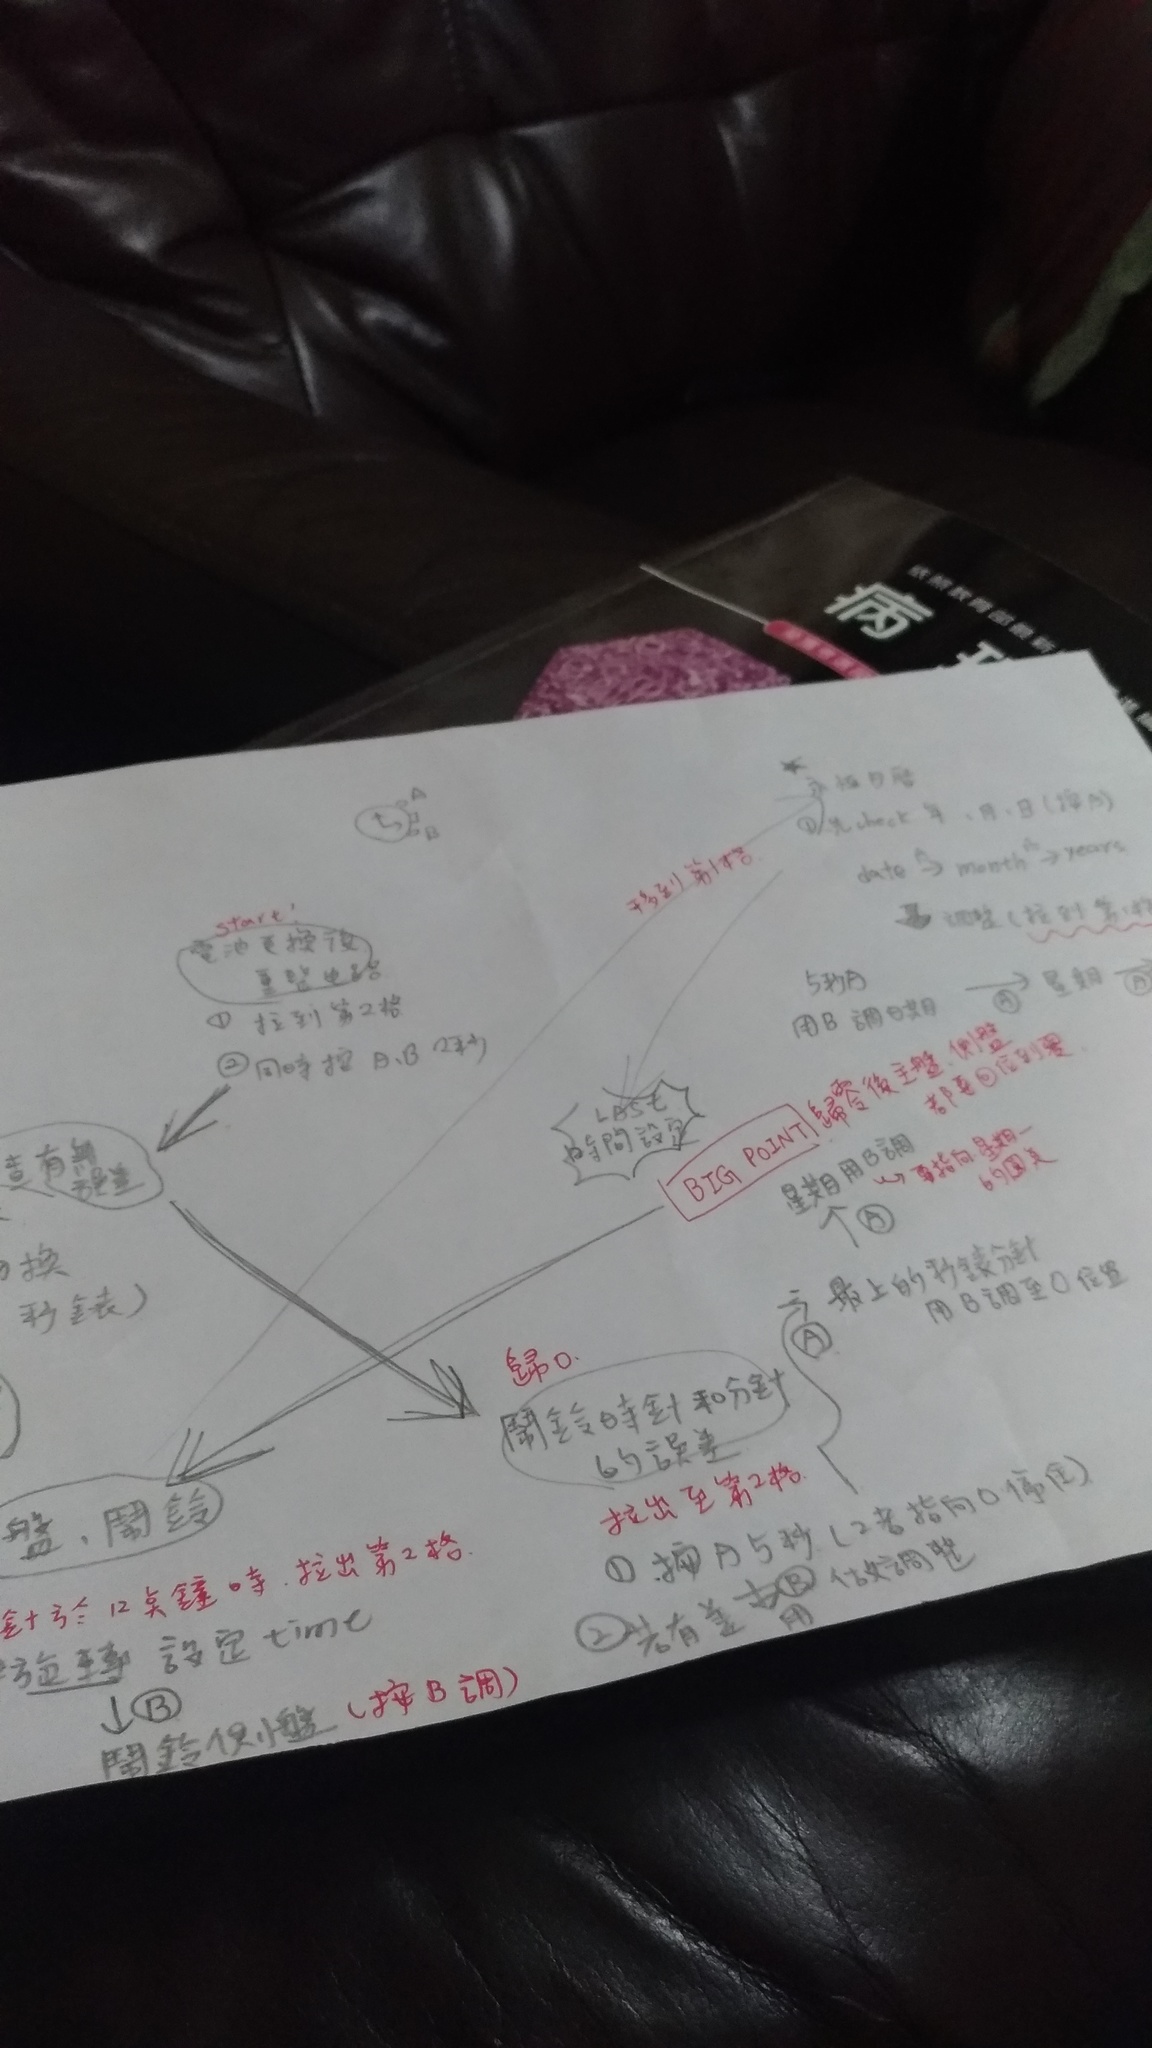 病理
A
B
永恆日曆
①先check 年、月、日(按A)
date → month → years
調整(拉到第1格
移到第1格.
start!
電池更換後
重置電路
① 拉到第2格
②同時按 A、B 2秒
5秒A
用B 調日期 → Ⓐ 星期 Ⓐ
LAST
時間設定
BIG POINT 歸零後主盤、側盤
都要回位到零.
星期用B調
→要指向星期一
的圓点
↑Ⓐ
查有無
誤差
換
秒錶)
→ 最上的秒錶分針
Ⓐ 用B調至0位置
歸0.
鬧鈴時針和分針
的誤差
拉出至第2格.
① 按A5秒(2者指向0停住)
②若有差 用Ⓑ 做調整
盤、鬧鈴
針於12点鐘時.拉出第2格.
旋轉 設定time
↓Ⓑ
鬧鈴側小盤(按B調)